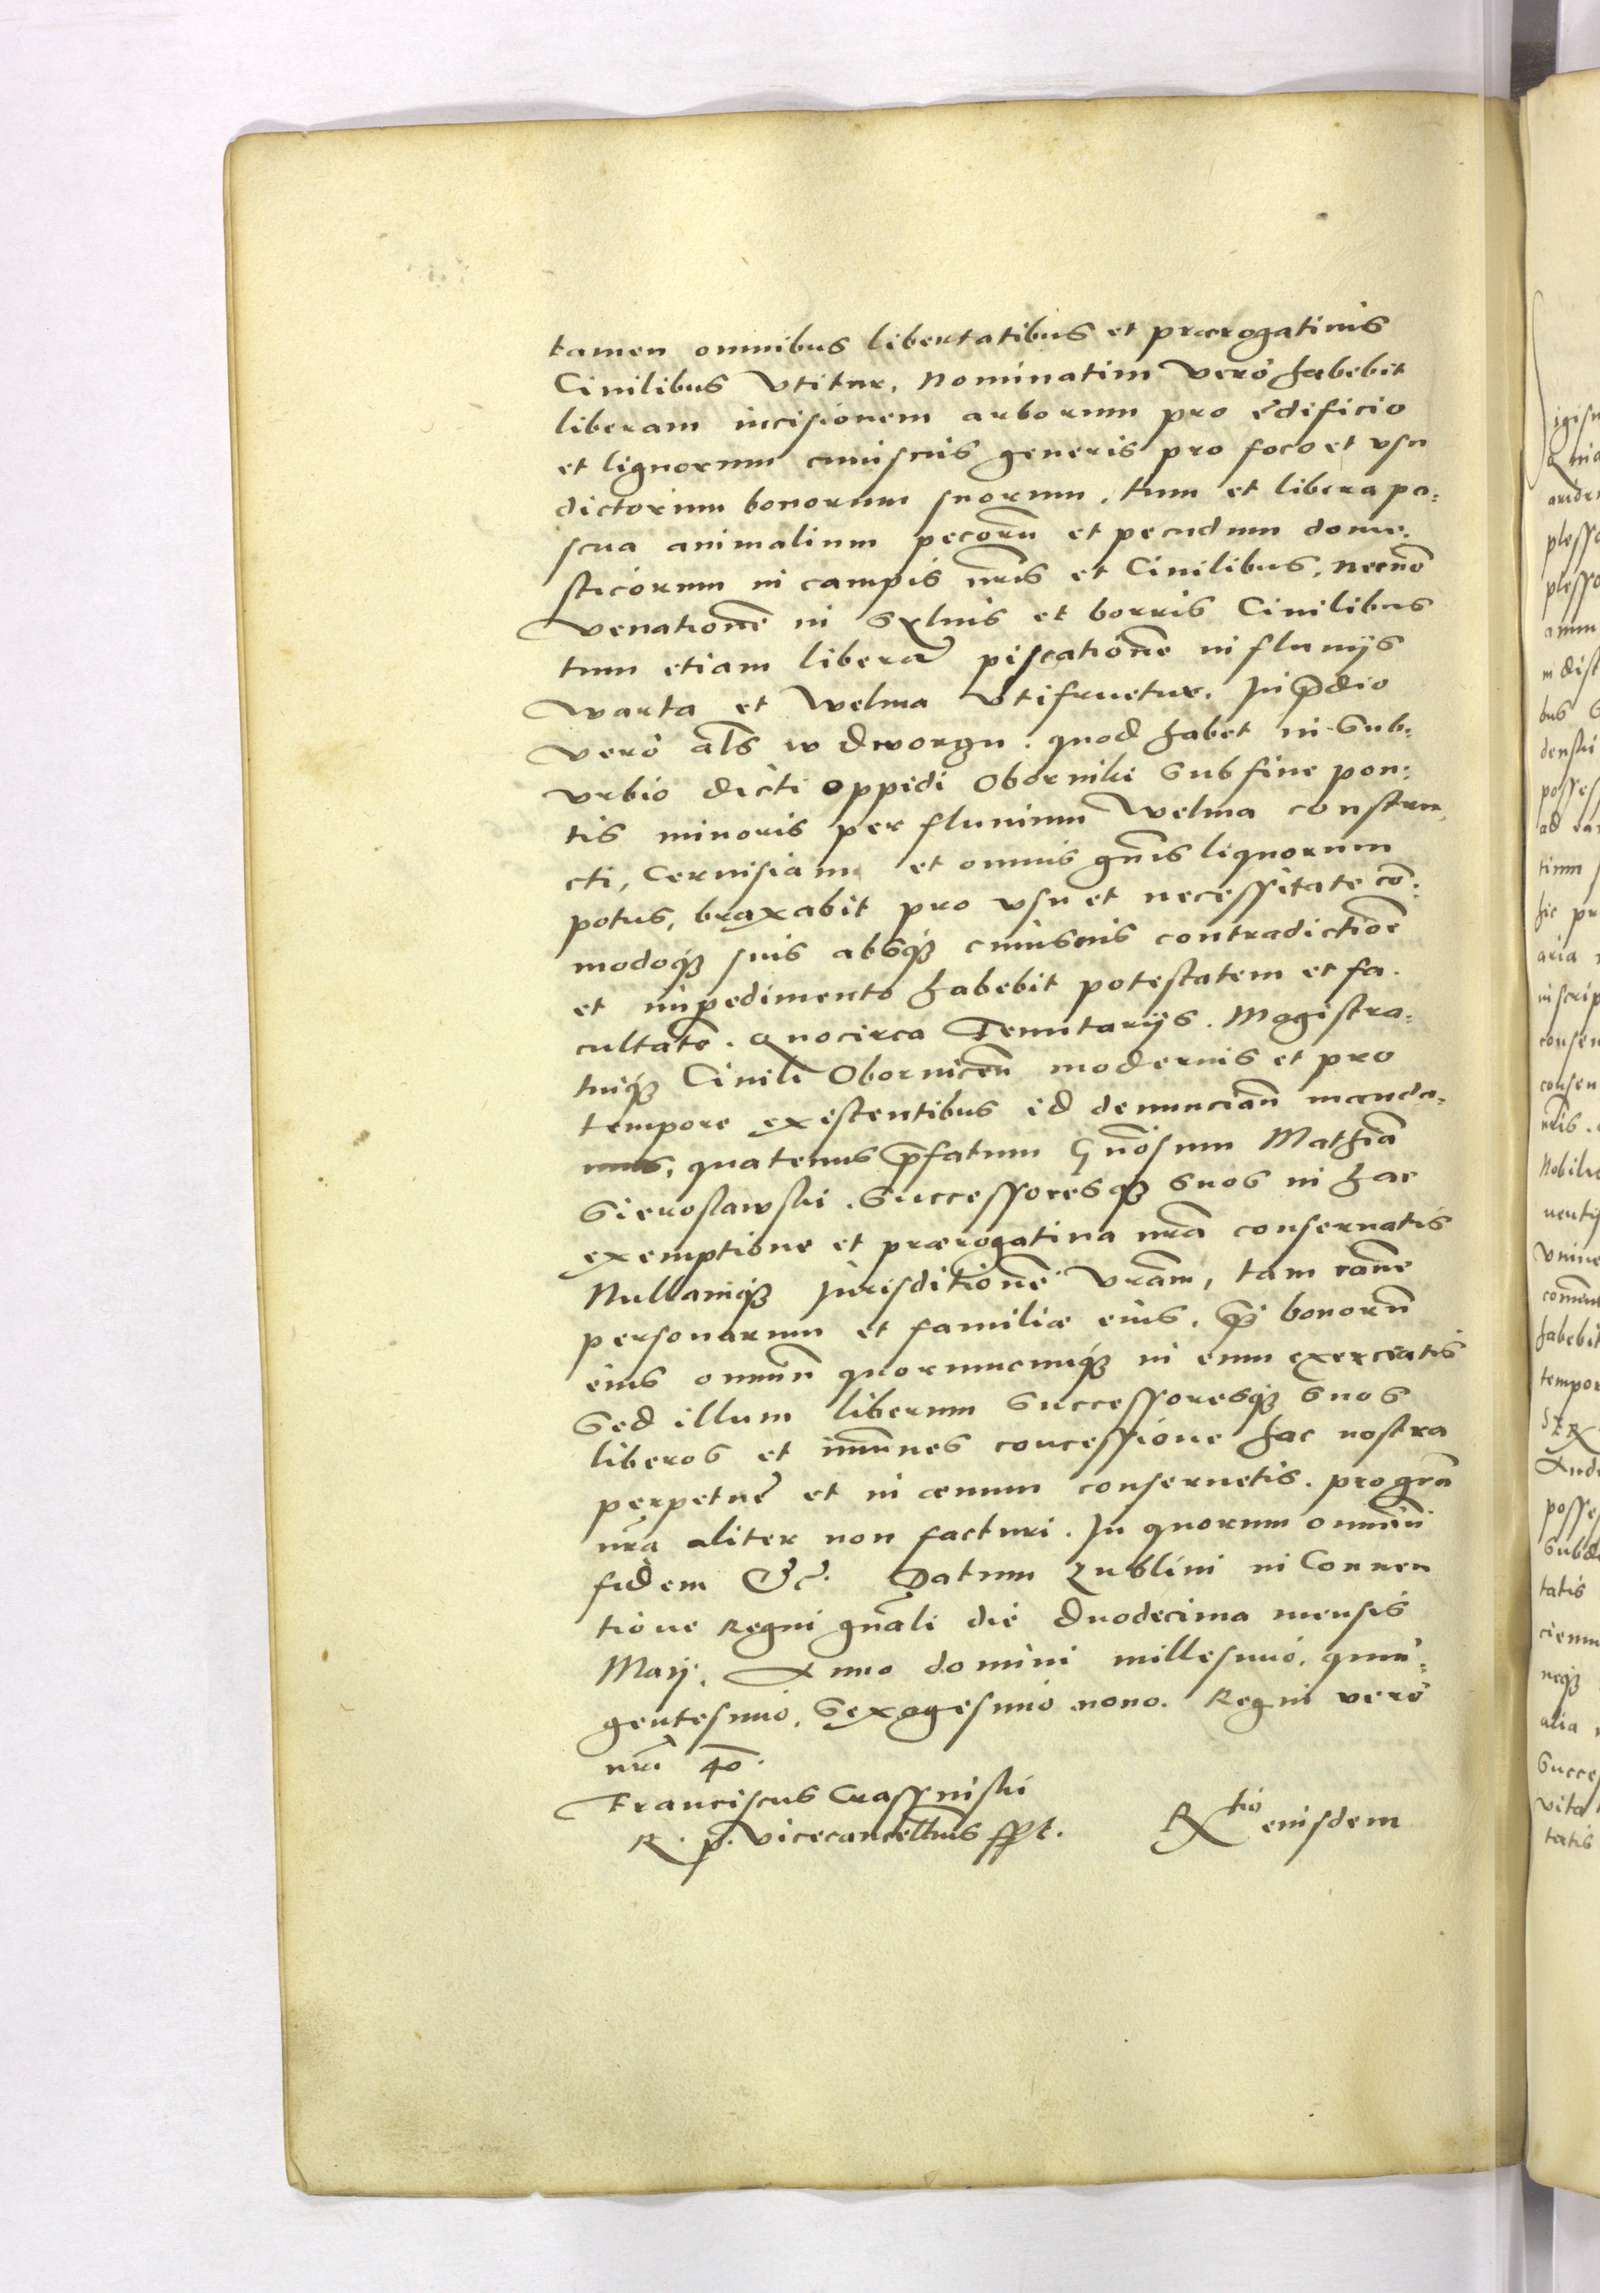 tamen omnibus libertatibus et prærogatiuis
Ciuilibus vtitur, Nominatim vero habebit
liberam incisionem arborum pro ędificio
et lignorum cuiusuis generis pro foco et vsu
dictorum bonorum suorum, tum et libera pa:
scua animalium pecorū et pecudum dome.
sticorum in campis nr̄is et Ciuilibus, necnō
venationē in syluis et borris Ciuilibus
tum etiam liberā piscationē in fluuijs
Warta et Welma vtifruetur. In p̄dio
vero al̄s w dworgu. quod habet in Sub:
vrbio dicti oppidi Oborniki sub fine pon:
tis minoris per fluuium Welma constru
cti, Ceruisiam et omnis gn̄is liquorum
potus, braxabit pro vsu et necessitate cō:
modoq̢ suis absq̢ cuiusuis contradictiōe
et impedimento habebit potestatem et fa.
cultatē. Quocirca Tenutarijs. Magistra:
tuiq̢ Ciuili Obornicen̄ modernis et pro
tempore existentibus id denunciān manda:
mus, quatenus p̄fatum Gn̄osum Mathiā
Sierosławski. Successoresq̢ suos in hac
exemptione et prærogatiua nr̄a conseruatis
Nullamq̢ Jurisditionē vr̄am, tam rōne
personarum et familiæ eius, q̄ bonorū
eius omniū quorumcunq̢ in eum exerceatis
Sed illum liberum Successoresq̢ suos
liberos et im̄unes concessione hac nostra
perpetuē et in æuum conseruetis. pro gr̄a
nr̄a aliter non facturi. In quorum omniū
fidem &c. Datum Lublini in Conuen
tione Regni gn̄ali die duodecima mensis
Maij. Anno domini millesimo, quin:
gentesimo, Sexagesimo nono. Regni vero
nr̄i 40.
Franciscus Crassniski
R. p. vicecancell̄rius sspt. Rtio eiusdem